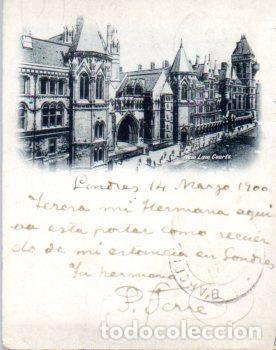 New Law Courts
Londres 14 Marzo 1900
Teresa mi Hermana aqui
va esta postal como recuer
do de mi estancia en Londres
Tu hermano
P. Serre
BARCEL
todocoleccion.net